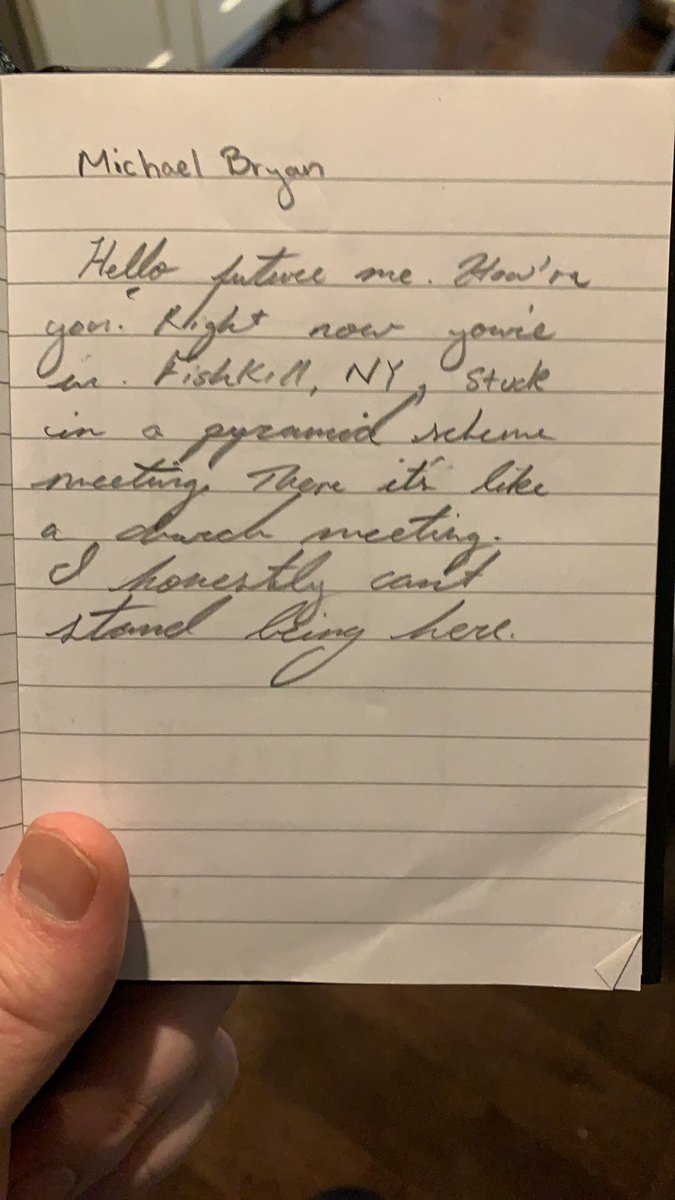 Michael Bryan
Hello future me. How're
you. Right now you're
in. Fishkill, NY, stuck
in a pyramid scheme
meeting. There it's like
a church meeting.
I honestly can't
stand being here.